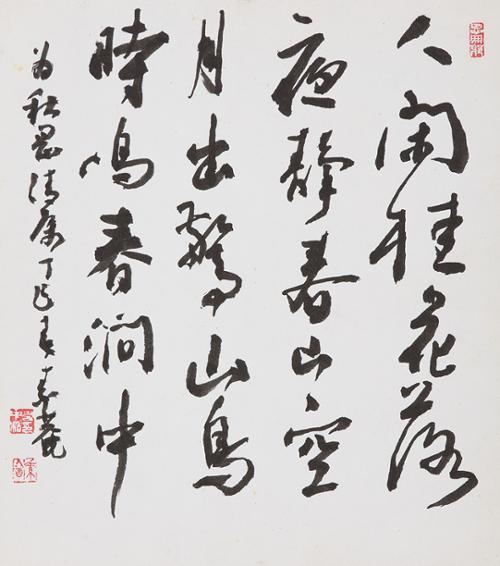 人閑桂花落
夜靜春山空
月出驚山鳥
時鳴春澗中
为秋清属丁巳菴